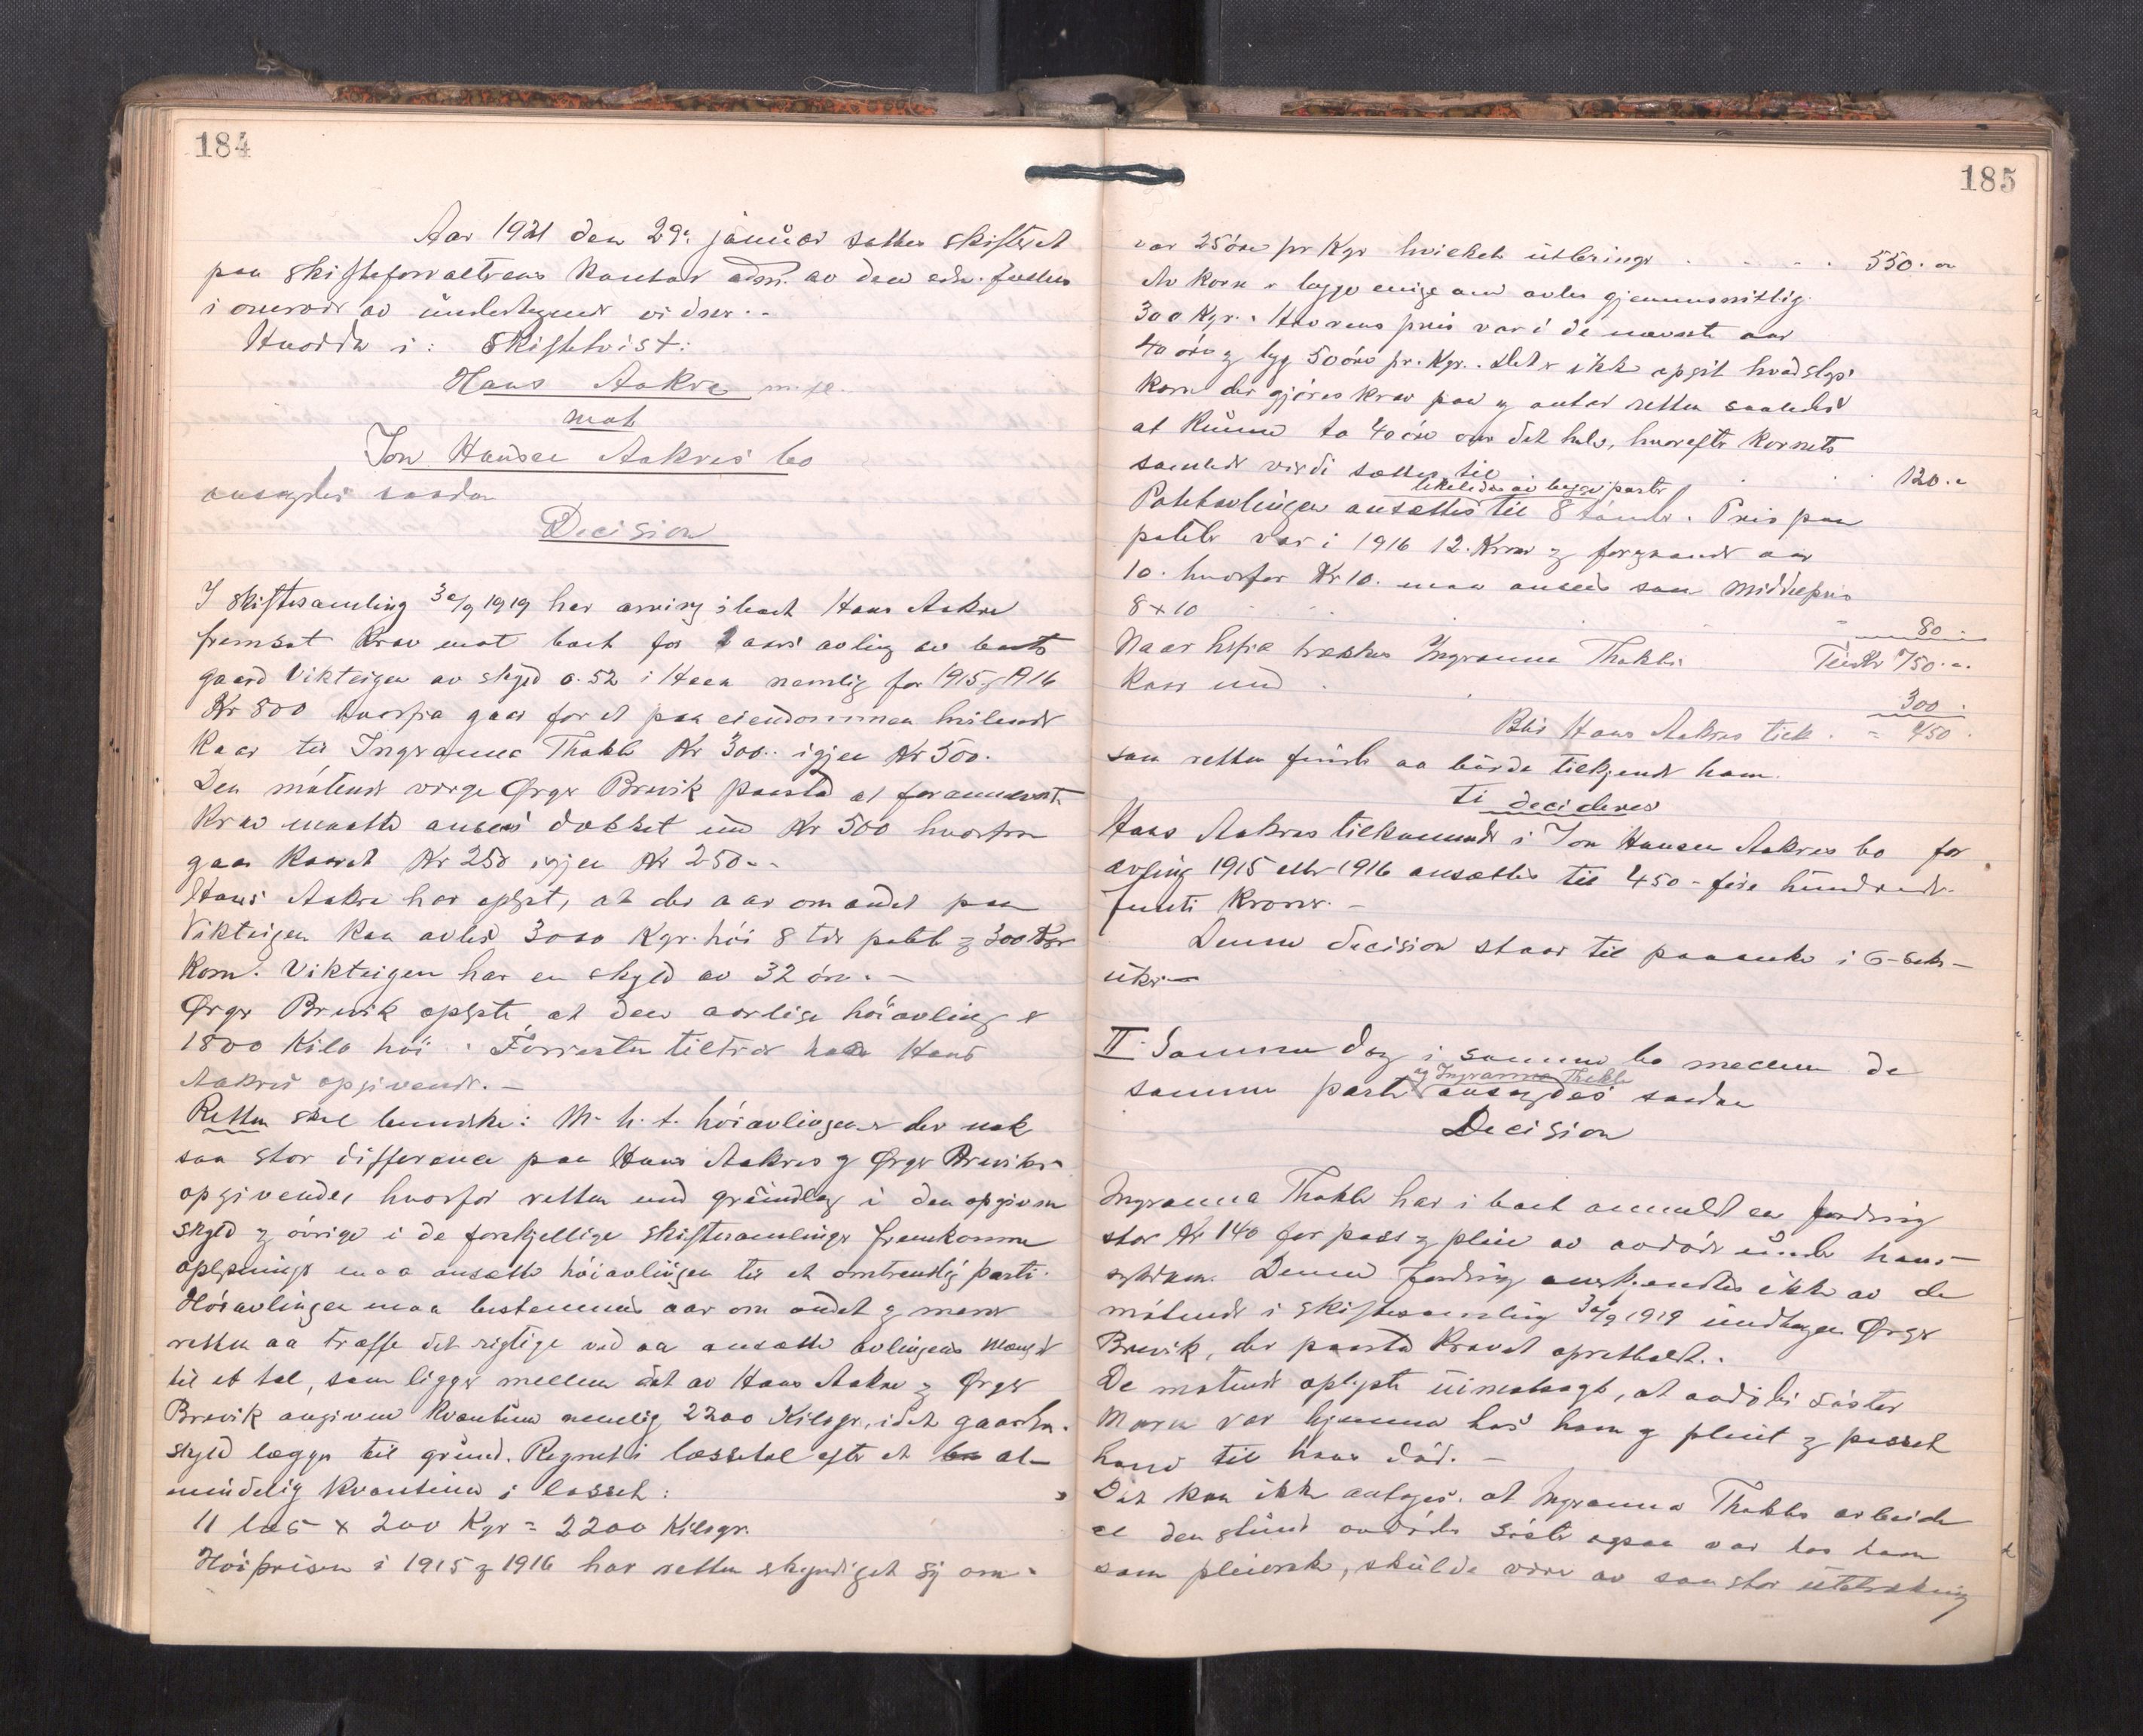 184
Aar 1921 den 29: januar sattes skifteret
paa skifteforvalterens kontor adm. av den edv. fuldm.
i overvær av undertegnede vidner. -
Hvorda i: Skiftetvist:
Hans Aakre m. fl.
mot
Jon Hansen Aakres bo
avsagdes saadan
Decision
I skiftesamling 30/9 1919 har arving i boet Hans Aakre
fremsat krav mot boet for 2 aars avling av boets
gaard Vikteigen av skyld 0.52 i Haen nemlig for 1915 og 1916
Kr 800 hvorfra gaar for et paa eiendommen hvilende
kaar til Ingranna Thokle Kr 300.. igjen Kr 500.
Den møtende verge Ørger Brevik paastod at forannevnte
krav maatte ansees dækket med Kr 500 hvorfra
gaar kaaret Kr 250 igjen Kr 250.-
Hans Aakre har oplyst, at der aar om andet paa
Vikteigen kan avles 3000 Kgr. høi 8 tdr potet og 300 Kgr
korn. Vikteigen har en skyld av 32 øre. -
Ørger Brevik oplyste at den aarlige høiavling er
1800 Kilo høi. Forresten tiltrær han Hans
Aakres opgivende. -
Retten skal bemerke: M. h. t. høiavlingen er der nok
saa stor differance paa Hans Aakres og Ørger Breviks
opgivender hvorfor retten med grundlag i den opgivne
skyld og øvrige i de forskjellige skiftesamlinger fremkomne
oplysninger maa ansætte høiavlingen til et omtrentlig parti.
Høiavlingen maa bestemmes aar om andet og mener
retten aa træffe det rigtige ved aa ansætte avlingens mængde
til et tal, som ligger mellem det av Hans Aakre og Ørger
Brevik angivne kvantum nemlig 2200 Kilogr., idet gaardens
skyld lægges til grund. Regnet i lassetal efter et al-
mindelig kvantum i lasset:
11 læs x 200 Kgr = 2200 Kilogr.
Høiprisen i 1915 og 1916 har retten skyndiget sig om.
185
var 25 øre pr Kgr hvilket utbringer 550. -
Av korn er begge enige om avles gjennemsnitlig
300 Kgr. Havrens pris var i de nævnte aar
40 øre og byg 50 øre pr. Kgr. Det er ikke opgit hvad slags
korn der gjøres krav paa og antar retten saaledes
at kunne ta 40 øre over det hele, hvorefter kornets
samlede værdi sættes til 120. -
likeledes av begge parter
Potetavlingen ansættes til 8 tønder. Pris paa
poteter var i 1916 12. Kroner og foregaaende aar
10. hvorfor Kr 10. maa ansees som middelpris
8 x 10 80 -
Naar hefra trækkes Ingranna Thokles Tils Kr 750. -
kaar med 300
Blir Hans Aakres tilk. = 450
som retten finder aa burde tilkjende ham.
ti decideres
Hans Aakres tilkommende i Jon Hansen Aakres bo for
avling 1915 eller 1916 ansættes til 450 - fire hundrede
femti kroner. -
Denne decision staar til paaanke i 6 - seks -
uker -
II. Samme dag i samme bo mellem de
og Ingranna Thokle
samme parter avsagdes saadan
Decision
Ingranna Thokle har i boet anmeldt en fordring
stor Kr 140 for pass og pleie av avdøde under hans
sykdom. Denne fordring anerkjendtes ikke av de
møtende i skiftesamling 30/9 1919 undtagen Ørger
Brevik, der paastod kravet opretholdt. .
De møtende oplyste uimotsagt, at avdødes søster
Maren var hjemme hos ham og pleiet og passet
ham til hans død. -
Det kan ikke antages, at Ingranna Thokles arbeide
al den stund avdødes søster ogsaa var hos ham
som pleierske, skulde være av saa stor utstrækning